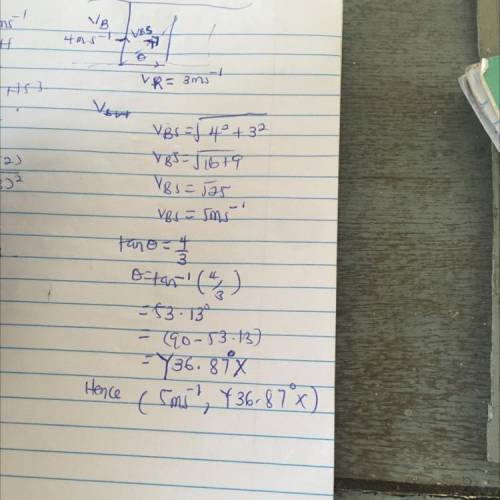 ms⁻¹ V_B
4ms⁻¹ V_BS
θ
V_R = 3ms⁻¹
N53
V_BS = √4² + 3²
V_BS = √16+9
V_BS = √25
V_BS = 5ms⁻¹
tanθ = 4/3
θ = tan⁻¹ (4/3)
= 53.13°
= (90 - 53.13)
= Y36.87°X
Hence (5ms⁻¹, Y36.87°X)